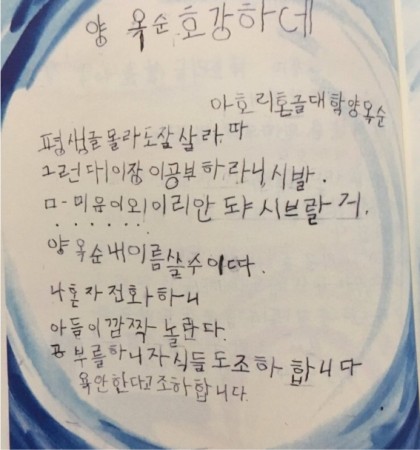 양 옥순 호강하데
아흐리혼글대학양옥순
평생글몰라도잘살라따
그런대이장이공부하라니시발.
ㅁ-미유이오이리안 돠 시브랄 거.
양옥순내이름쓸수이따.
나혼자전화하니
아들이깜짝놀란다.
공부를하니자식들도조하합니다
욕안한다고조하합니다.